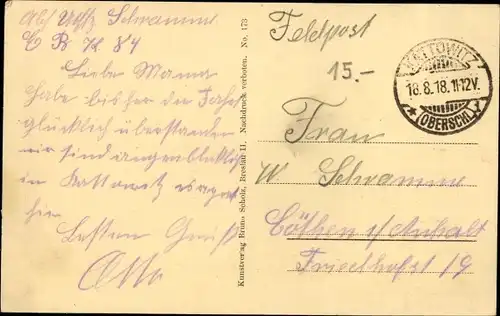 Abs Uffz Schwamme
E B K 84
Liebe Mama
habe bis her die Fahrt
glücklich überstanden
wir sind augenblicklich
in Kattowitz
hier
Besten Gruß
Otto
Kunstverlag Bruno Scholz, Breslau 11. Nachdruck verboten. No. 173
Feldpost
15.-
KATTOWITZ
18.8.18.11-12V.
(OBERSCHL.)
Frau
W Schwamme
Cöthen i/Anhalt
Friedhofstr 19